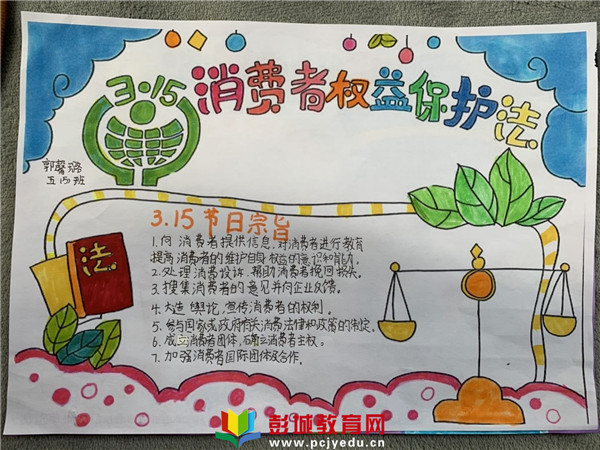 3·15
消费者权益保护法
郭馨璐
五(5)班
3.15节日宗旨
1.向消费者提供信息,对消费者进行教育
提高消费者的维护自身权益的意识和能力.
2.处理消费投诉,帮助消费者挽回损失.
3.搜集消费者的意见并向企业反馈.
4.大造舆论,宣传消费者的权利.
5.参与国家或政府有关消费法律和政策的制定.
6.成立消费者团体,确立消费者主权.
7.加强消费者国际团体及合作.
法
彭城教育网
www.pcjyedu.cn